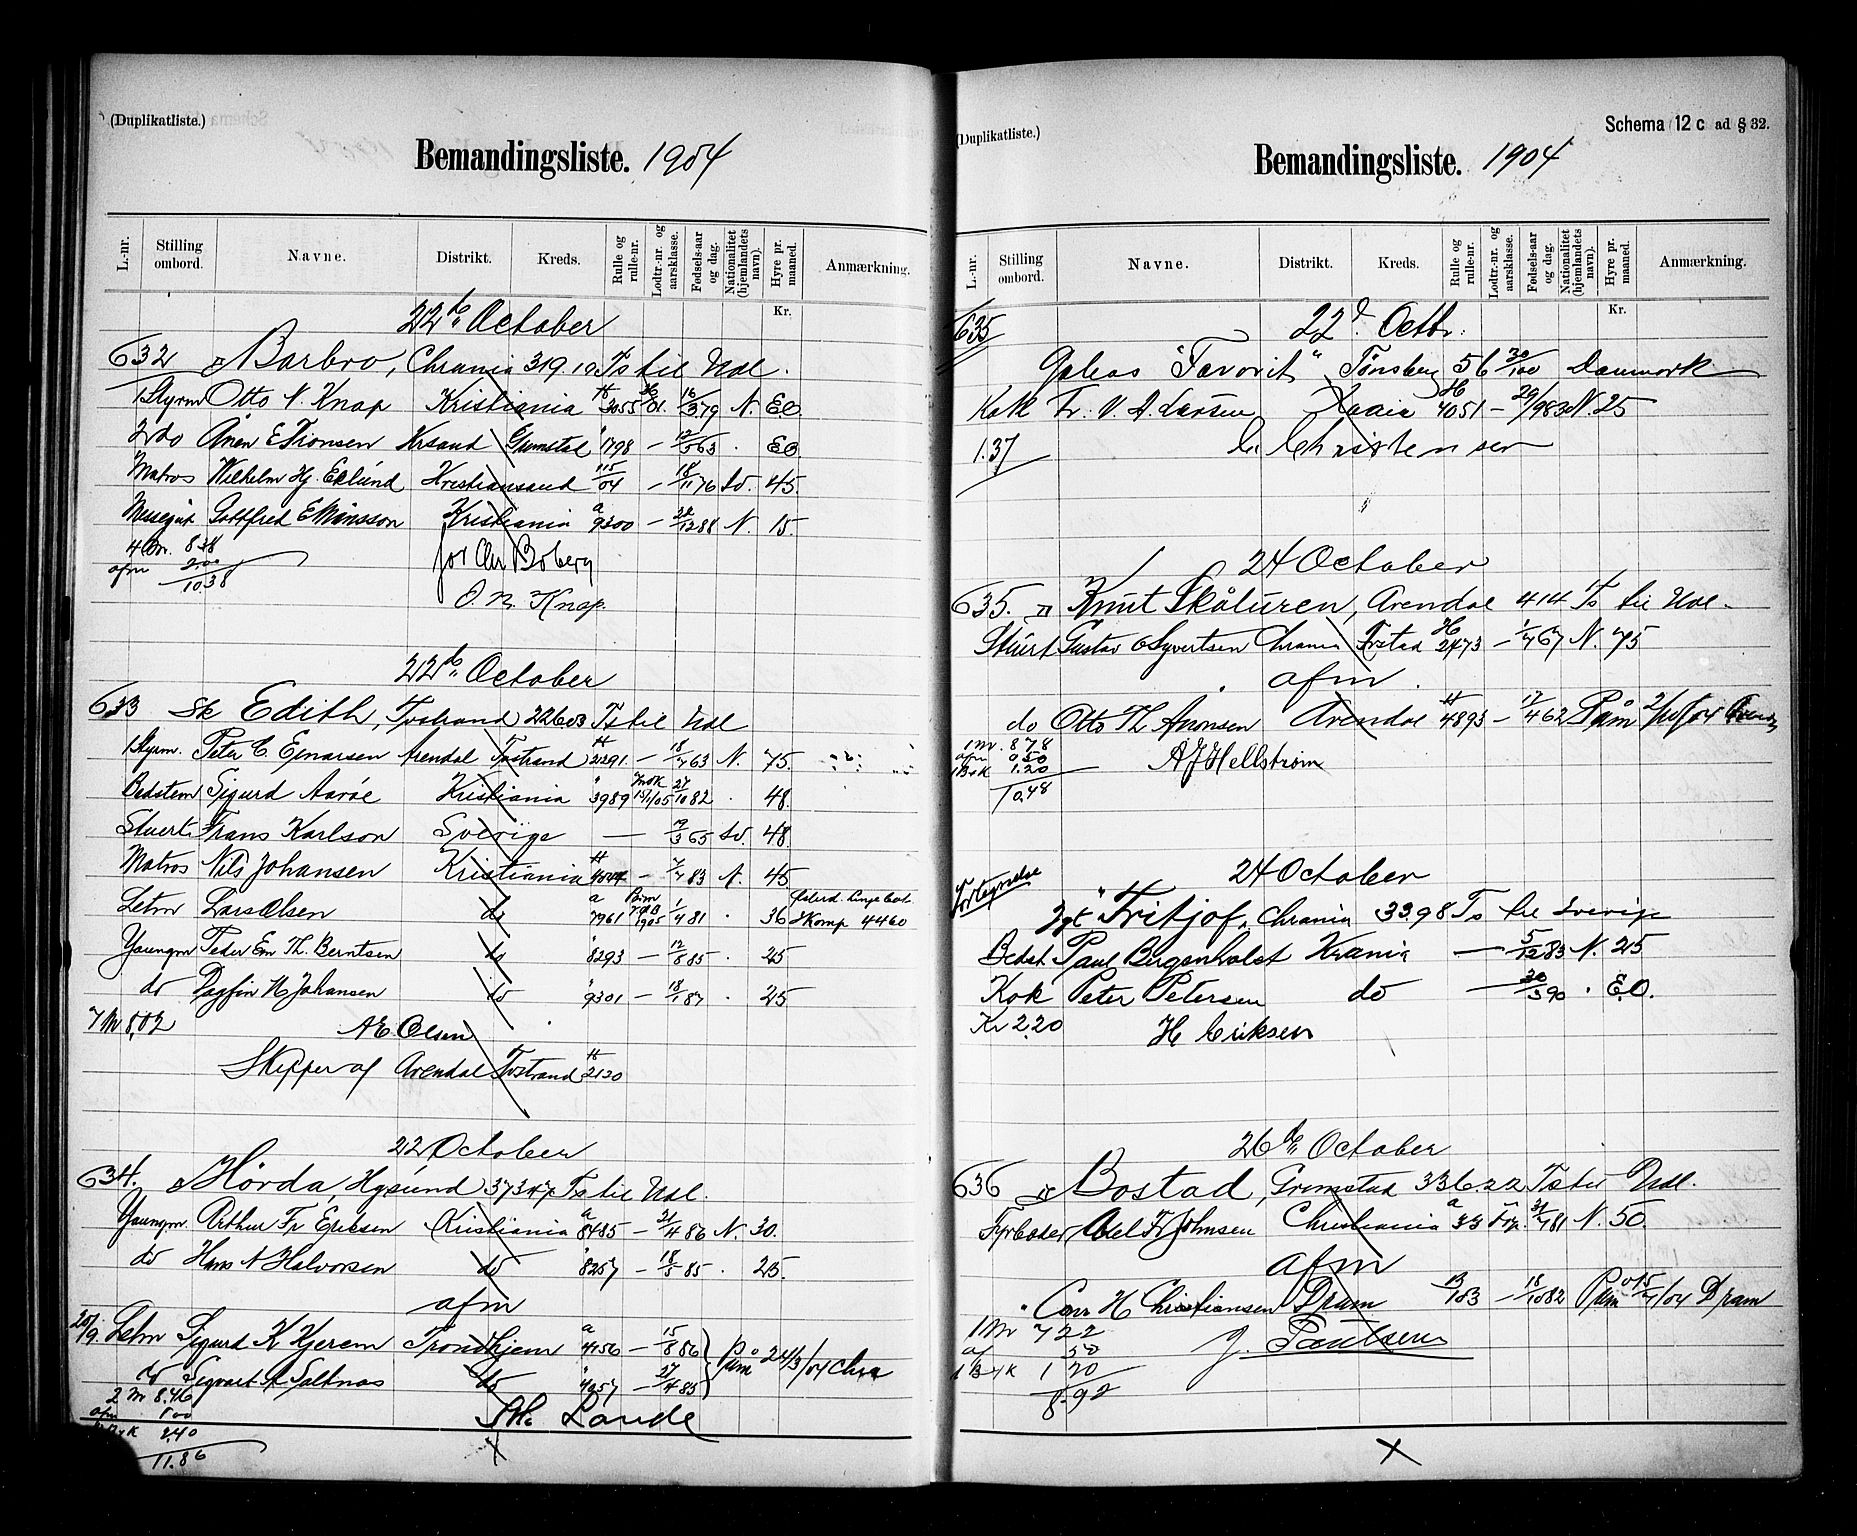 (Duplikatliste.)
Bemandingsliste. 1904
L.-nr. Stilling ombord. Navne. Distrikt. Kreds. Rulle og rulle-nr. Lodtr.-nr. og aarsklasse. Fødsels-aar og dag. Nationalitet (hjemlandets navn). Hyre pr. maaned. Anmærkning.
Kr.
22de October
632 Barbro, Chrania 319.10 Ts til Udl.
1 Styrm Otto N. Knap Kristiania 3055 16/3 79 N. EO
2 do Anen E Tronsen Krsand Grimstad 1798 — 12/5 63 . EO
Matros Wilhelm Hj. Eklund Kristiansand 115/04 — 18/11 76 Sv. 45.
Messegut Gottfred E Månsson Kristiania a 9300 — 22/12 88 N. 15.
4 M. 8.38
afm 2.00
10.38
for Chr Boberg
O. N. Knap.
22de October
633 Sk Edith, Tvstrand 226.03 Ts til Udl
1 Styrm. Peter C. Ejnarsen Arendal Tvstrand H 2291 — 18/7 63 N. 75.
Bedstem Sigurd Aarøe Kristiania " 3989 27/10 82 . 48.
Stuert Frans Karlson Sverige — 3 65 Sv. 48.
Matros Nils Johansen Kristiania H — 7/7 83 N. 45
Letm Lars Olsen do a 7961 1905 1/4 81 . 36 Komp 4460
Youngm Peder Em Th. Berntsen do " 8293 — 12/8 85 . 25
do Dagfin N Johansen do " 9301 — 18/1 87 . 25
7 M 8,02
A E. Olsen
Skipper af Arendal Tvstrand H 2120
22 October
634. Hørda, Hgsund 373.47 Ts til Udl.
Youngm. Arthur Fr Eriksen Kristiania a 8485 — 21/4 86 N. 30.
do Hans A Halvorsen do " 8257 — 18/5 85 . 25.
afm
20/9 Letm Sigurd K Kjerem Trondhjem a 4156 — 15/8 86 Påm 24/3/04 Chra
do Sigvart A Saltnas do " 4957 — 27/4 85
2 M 8.46
afm 1.00
2.40
11.86
Lande
(Duplikatliste.)
Schema 12 c ad § 32.
Bemandingsliste. 1904
L.-nr. Stilling ombord. Navne. Distrikt. Kreds. Rulle og rulle-nr. Lodtr.-nr. og aarsklasse. Fødsels-aar og dag. Nationalitet (hjemlandets navn). Hyre pr. maaned. Anmærkning.
Kr.
635 22d. Octbr.
Galeas "Favorit" Tønsberg 56 30/100 Danmark
Kok Fr. V. A. Larsen Kraaia H 4051 — 29/9 83 N. 25
1.37 C. Christensen
24 October
635. Knut Skåluren, Arendal 414 Ts til Udl.
Stuert Gustav O Syvertsen Chrania Frstad H 2473 — 1/7 67 N. 75
afm.
do Otto Th. Aronsen Arendal H 4893 — 17/4 62 Påm
1 M. 8.78
afm 0.50
1 B & K 1.20
10.48
A J Hellstrøm
24 October
Fortegnelse
Jgt "Fritjof", Chrania 33.98 Ts til Sverige
Bedst. Paul Bergenholst Krania — 5/12 83 N. 25
Kok Peter Petersen do — 30/3 90 . E.O.
Kr 2.20 H Eriksen
26de October
636 Bostad, Grimstad 336.22 Ts til Udl.
Fyrbøder Axel Fr Johnsen Christiania a 31/7 81 N. 50
afm
" Carr H Christiansen Dram 103 — 18/10 82 Påm Dram
1 M 7 22
af 50
1 B & K 1 20
8.92
J. Paulsen